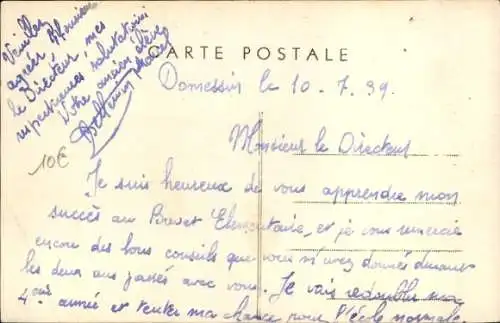 CARTE POSTALE
Domessin le 10-7.39
Monsieur le Directeur
Je suis heureux de vous apprendre mon
succès au Brevet Elementaire, et je vous remercie
encore des bons conseils que vous m'avez donnés durant
les deux ans passés avec vous. Je vais redoubler ma
4ème année et tenter ma chance pour l'école normale.
Veuillez
agréer Monsieur
le Directeur, mes
respectueuses salutations
Votre ancien élève
10€